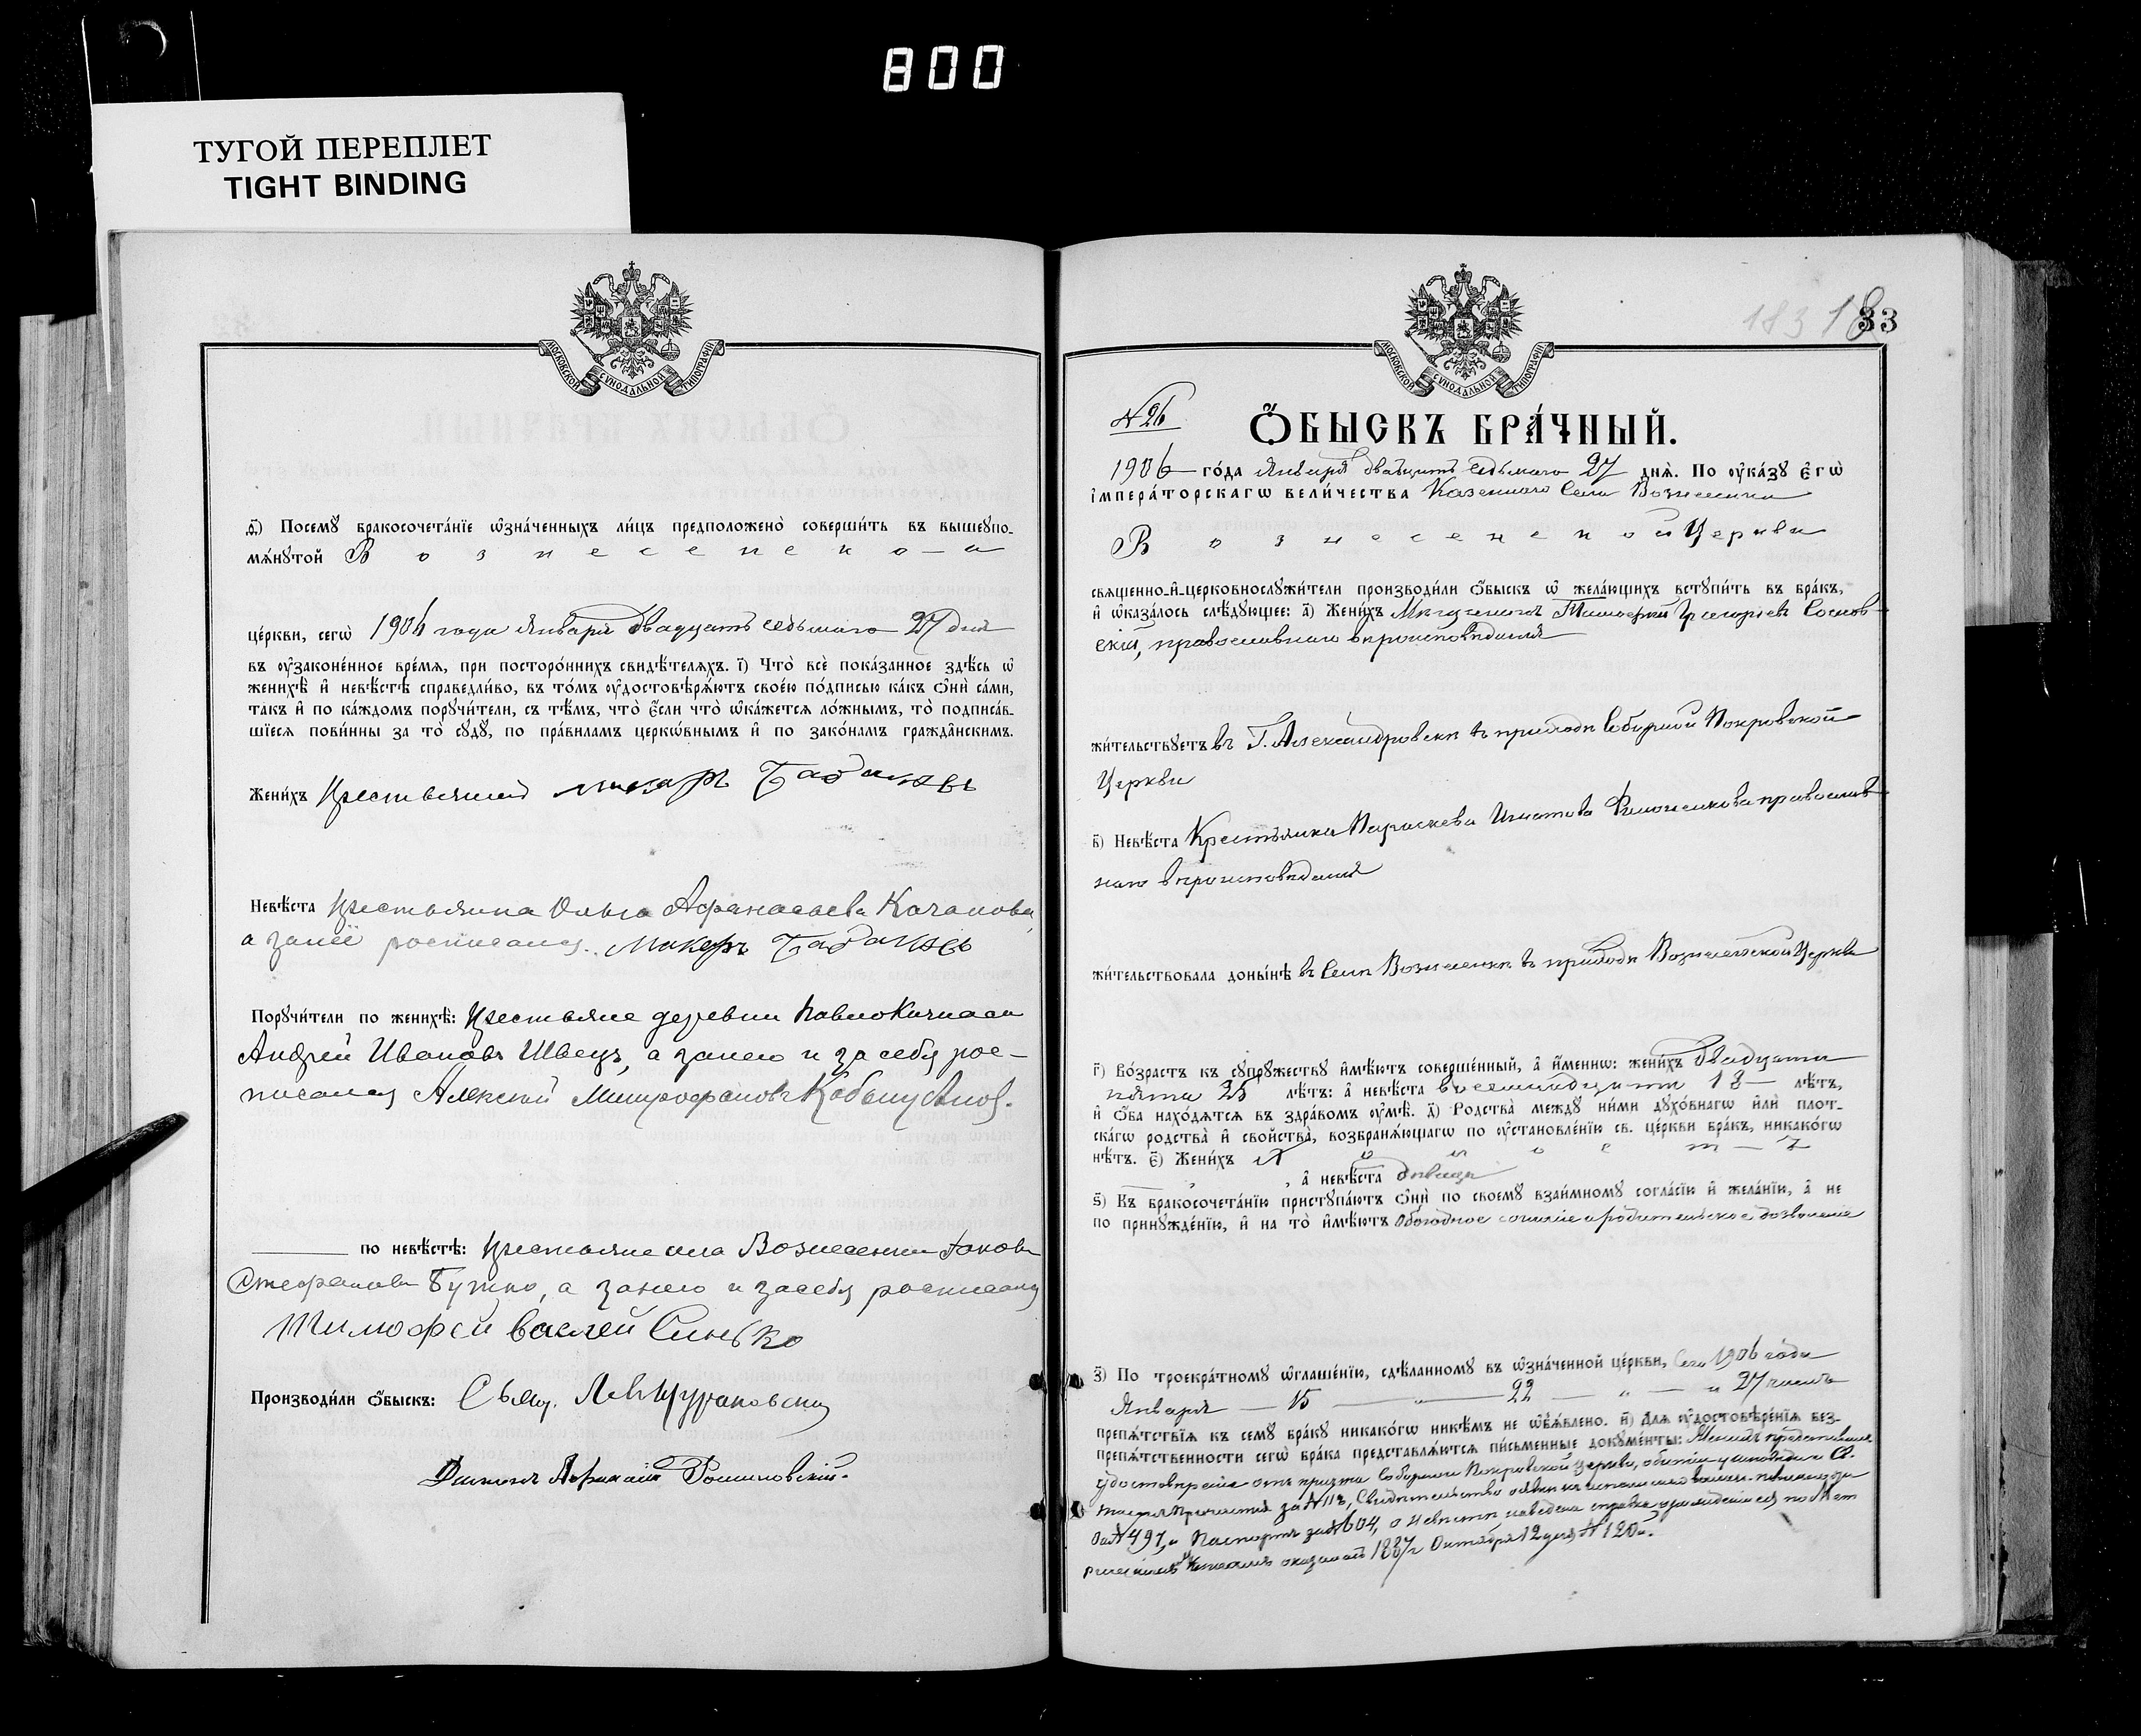 800
ТУГОЙ ПЕРЕПЛЕТ
TIGHT BINDING
МОСКОВСКОЙ СѴНОДАЛЬНОЙ ТИПОГРАФІИ
Ѳ҃) Посемꙋ бракосочета́нїе ѡ҆зна́ченныхъ ли́цъ предположено̀ соверши́ть въ вышеꙋпо-
мѧ́нꙋтой Вознесенско-й
це́ркви, сегѡ̀ 1906 года Января двадцать седьмаго 27 дня
въ ᲂу҆законе́нное вре́мѧ, при посторо́ннихъ свидѣ́телѧхъ. і҃) Что̀ всѐ пока́занное здѣ́сь ѡ҆
женихѣ̀ и҆ невѣ́стѣ справедли́во, въ то́мъ ᲂу҆достовѣрѧ́ютъ свое́ю по́дписью ка́къ ѻ҆нѝ са́ми,
та́къ и҆ по ка́ждомъ порꙋчи́тели, съ тѣ́мъ, что̀ є҆́сли что̀ ѡ҆ка́жетсѧ ло́жнымъ, то̀ подписа́в-
шїесѧ пови́нны за то̀ сꙋдꙋ̀, по пра́виламъ церкѡ́внымъ и҆ по зако́намъ гражда̑нскимъ.
Жени́хъ Крестьянинъ Макаръ
Невѣ́ста Крестьянка Ольга Афанасьева Качанова,
а за нее росписался Макаръ
Порꙋчи́тели по женихѣ̀: Крестьяне деревни Павлокичкаса
Андрей Ивановъ Швецъ, а за него и за себя рос-
писался Алексей Митрофановъ
по невѣ́стѣ: Крестьяне села Вознесенки Яковъ
Стефановъ Бутко, а за него и за себя росписался
Тимофей Синько
Производи́ли ѻ҆́быскъ: Свящ. Левъ
Афанасій
183 183
МОСКОВСКОЙ СѴНОДАЛЬНОЙ ТИПОГРАФІИ
№ 26
Ѻ҆́БЫСКЪ БРА́ЧНЫЙ.
1906 го́да Января двадцать седьмаго 27 днѧ̀. По ᲂу҆ка́зꙋ Є҆гѡ̀
І҆мпера́торскагѡ вели́чества Казеннаго Села Вознесенки
Вознесенской Церкви
свѧщенно-и҆-церковнослꙋжи́тели производи́ли ѻ҆́быскъ ѡ҆ жела́ющихъ встꙋпи́ть въ бра́къ,
и҆ ѡ҆каза́лось слѣ́дꙋющее: а҃) Жени́хъ Мѣщанинъ Тимофей Григорьевъ Соснов-
скій, православнаго вѣроисповѣданія
жи́тельствꙋетъ въ Г. Александровскѣ въ приходѣ Соборной Покровской
Церкви
в҃) Невѣ́ста Крестьянка Параскева Игнатова православ-
наго вѣроисповѣданія
жи́тельствовала доны́нѣ въ Селѣ Вознесенкѣ въ приходѣ Вознесенской Церкви
г҃) Во́зрастъ къ сꙋпрꙋ́жествꙋ и҆мѣ́ютъ соверше́нный, а҆ и҆́меннѡ: жени́хъ двадцати
пяти 25 лѣ́тъ: а҆ невѣ́ста восемнадцати 18 лѣ́тъ,
и҆ ѻ҆́ба нахо́дѧтсѧ въ здра́вомъ ᲂу҆мѣ̀. д҃) Родства̀ междꙋ ни́ми дꙋхо́внагѡ и҆лѝ плот-
ска́гѡ родства̀ и҆ свойства̀, возбранѧ́ющагѡ по ᲂу҆становле́нїю св. це́ркви бра́къ, никако́гѡ
нѣ́тъ. є҃) Жени́хъ холостъ
, а҆ невѣ́ста дѣвица
ѕ҃) Къ бракосочета́нїю пристꙋпа́ютъ ѻ҆нѝ по своемꙋ̀ взаи́мномꙋ согла́сїю и҆ жела́нїю, а҆ не
по принꙋжде́нїю, и҆ на то̀ и҆мѣ́ютъ обоюдное согласіе и родительское дозволеніе
з҃) По троекра́тномꙋ ѡ҆глаше́нїю, сдѣ́ланномꙋ въ ѡ҆зна́ченной це́ркви, Сего 1906 года
Января — 15 — „ — 22 — „ — и 27 чиселъ
препѧ́тствїѧ къ семꙋ̀ бра́кꙋ никако́гѡ никѣ́мъ не ѡ҆б̾ѧ́влено. и҃) Длѧ ᲂу҆достовѣре́нїѧ без-
препѧ́тственности сегѡ̀ бра́ка представлѧ́ютсѧ пи́сьменные докꙋме́нты: Женихъ представилъ
удостовреніе отъ причта Соборной Покровской церкви, о бытіи у исповѣди и Св.
причастія за № 118, Свидѣтельство о явкѣ къ исполненію воинс. повинности
за № 491, и Паспортъ за № 604, о невѣстѣ наведена справка о рожденіи ея по Мет
рическимъ Книгамъ 1887 г. Октября 12 дня № 120.